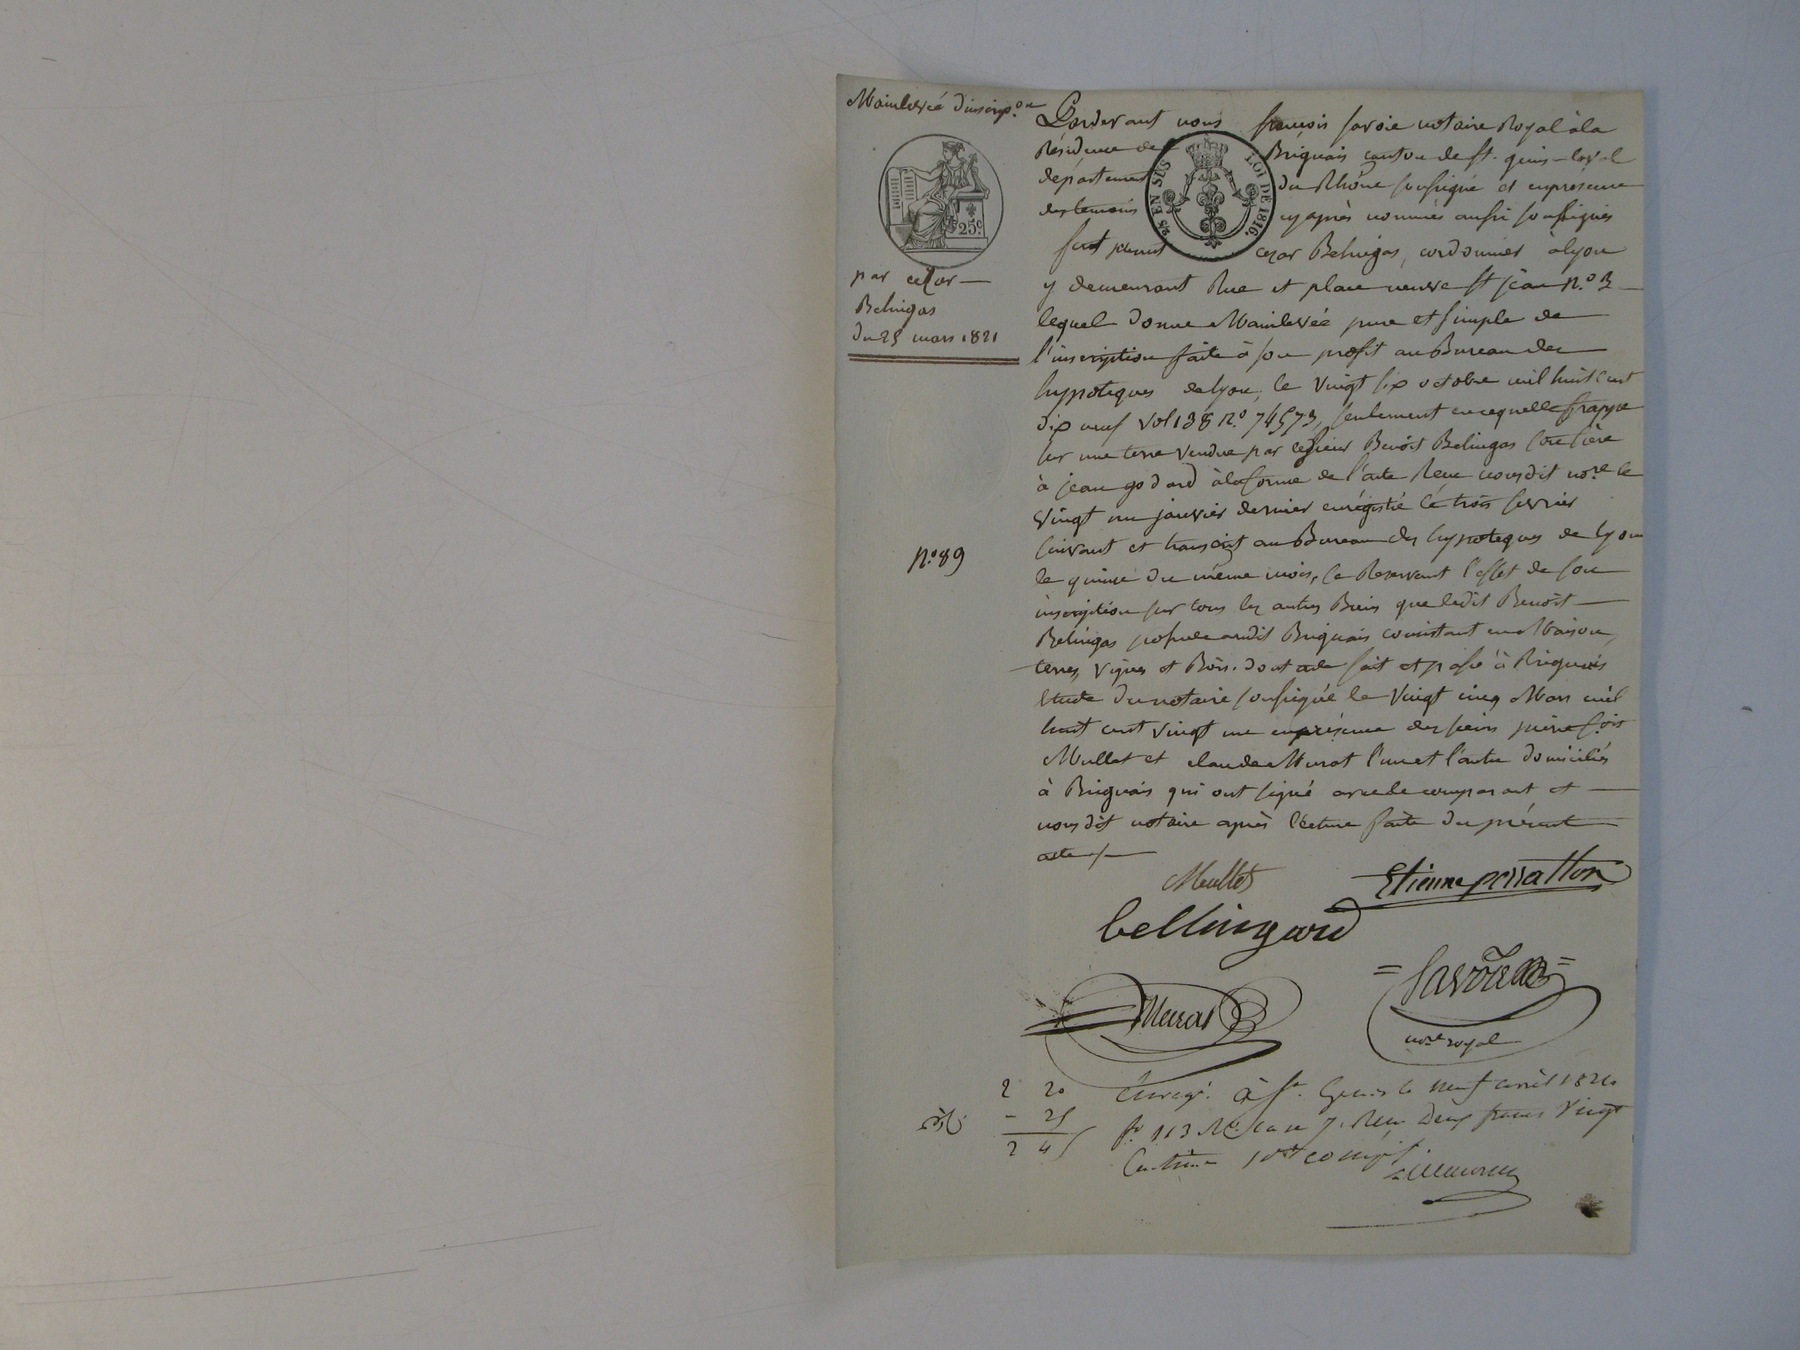 Mainlevée d'inscrip.on
25c
par cezar —
Belingas
du 25 mars 1821
n.o 89
25 EN SUS LOI DE 1816.
Pardevant nous françois Savoie notaire Royal à la
Résidence de Briguais canton de St. genis-laval
département du Rhône soussigné et en présence
des temoins cy après nommés aussi soussignés
fut présent cezar Belingas, cordonnier à lyon
y demeurant Rue et place neuve St jean n.o 3 —
lequel donne Mainlevée pure et simple de
l'inscription faite à son profit au Bureau des
hypoteques de lyon, le vingt six octobre mil huit cent
dix neuf vol 138 n.o 74573, seulement en ce qu'elle frappe
sur une terre vendue par le sieur Benoit Belingas son frère
à jean godard à la forme de l'acte Recu nousdit no.re le
vingt un janvier dernier enrégistré le trois fevrier
suivant et transcrit au Bureau des hypoteques de lyon
le quinze du même mois, se Reservant l'effet de son
inscription sur tous les autres Biens que ledit Benoit —
Belingas possede audit Briguais consistant en Maison,
terres, vignes et Bois. dont acte fait et passé à Briguais
Etude du notaire soussigné le vingt cinq Mars mil
huit cent vingt un en présence des sieurs pierre
Mullet et claude Murat l'un et l'autre domiciliés
à Briguais qui ont signé avec le comparant et —
nousdit notaire après lecture faite du présent
acte ./.
Mullet Etienne perratton
bellingard
Murat Savoie
no.re royal
2 20
- 25
2 45
Enregé. à St. Genis le neuf avril 1821
fo. 113 Ro. case 7. Reçu deux francs vingt
Centimes